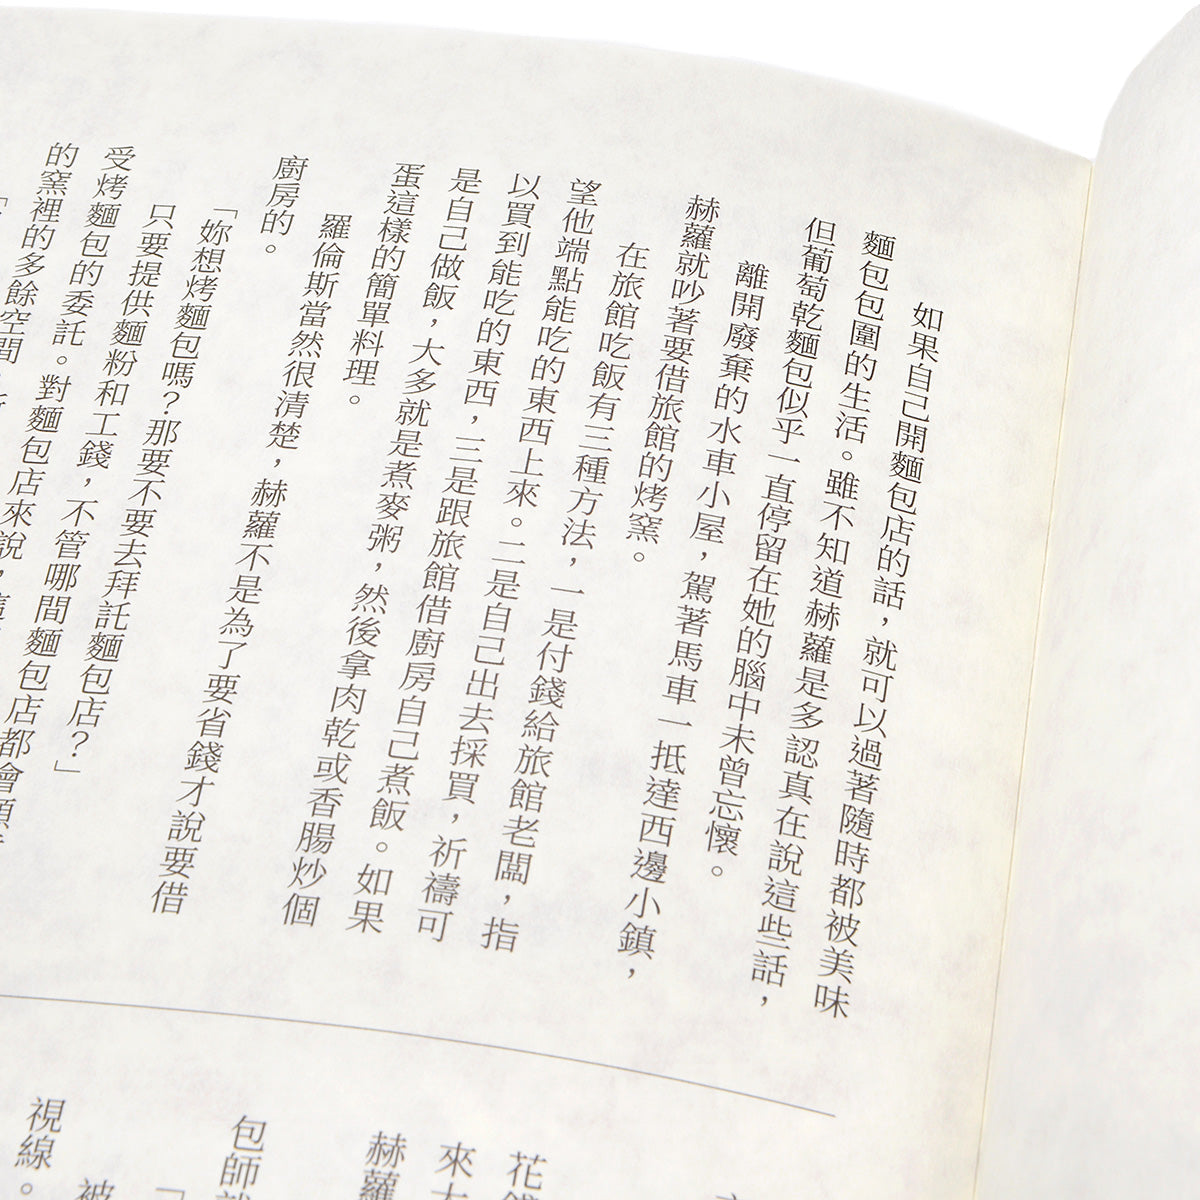 如果自己開麵包店的話，就可以過著隨時都被美味
麵包包圍的生活。雖不知道赫蘿是多認真在說這些話，
但葡萄乾麵包似乎一直停留在她的腦中未曾忘懷。
離開廢棄的水車小屋，駕著馬車一抵達西邊小鎮，
赫蘿就吵著要借旅館的烤窯。
在旅館吃飯有三種方法，一是付錢給旅館老闆，指
望他端點能吃的東西上來。二是自己出去採買，祈禱可
以買到能吃的東西，三是跟旅館借廚房自己煮飯。如果
是自己做飯，大多就是煮麥粥，然後拿肉乾或香腸炒個
蛋這樣的簡單料理。
羅倫斯當然很清楚，赫蘿不是為了要省錢才說要借
廚房的。
「妳想烤麵包嗎？那要不要去拜託麵包店？」
只要提供麵粉和工錢，不管哪間麵包店都會願
受烤麵包的委託。對麵包店來說，
的窯裡的多餘空間
花錢
來大
赫蘿
包師
被
視線。